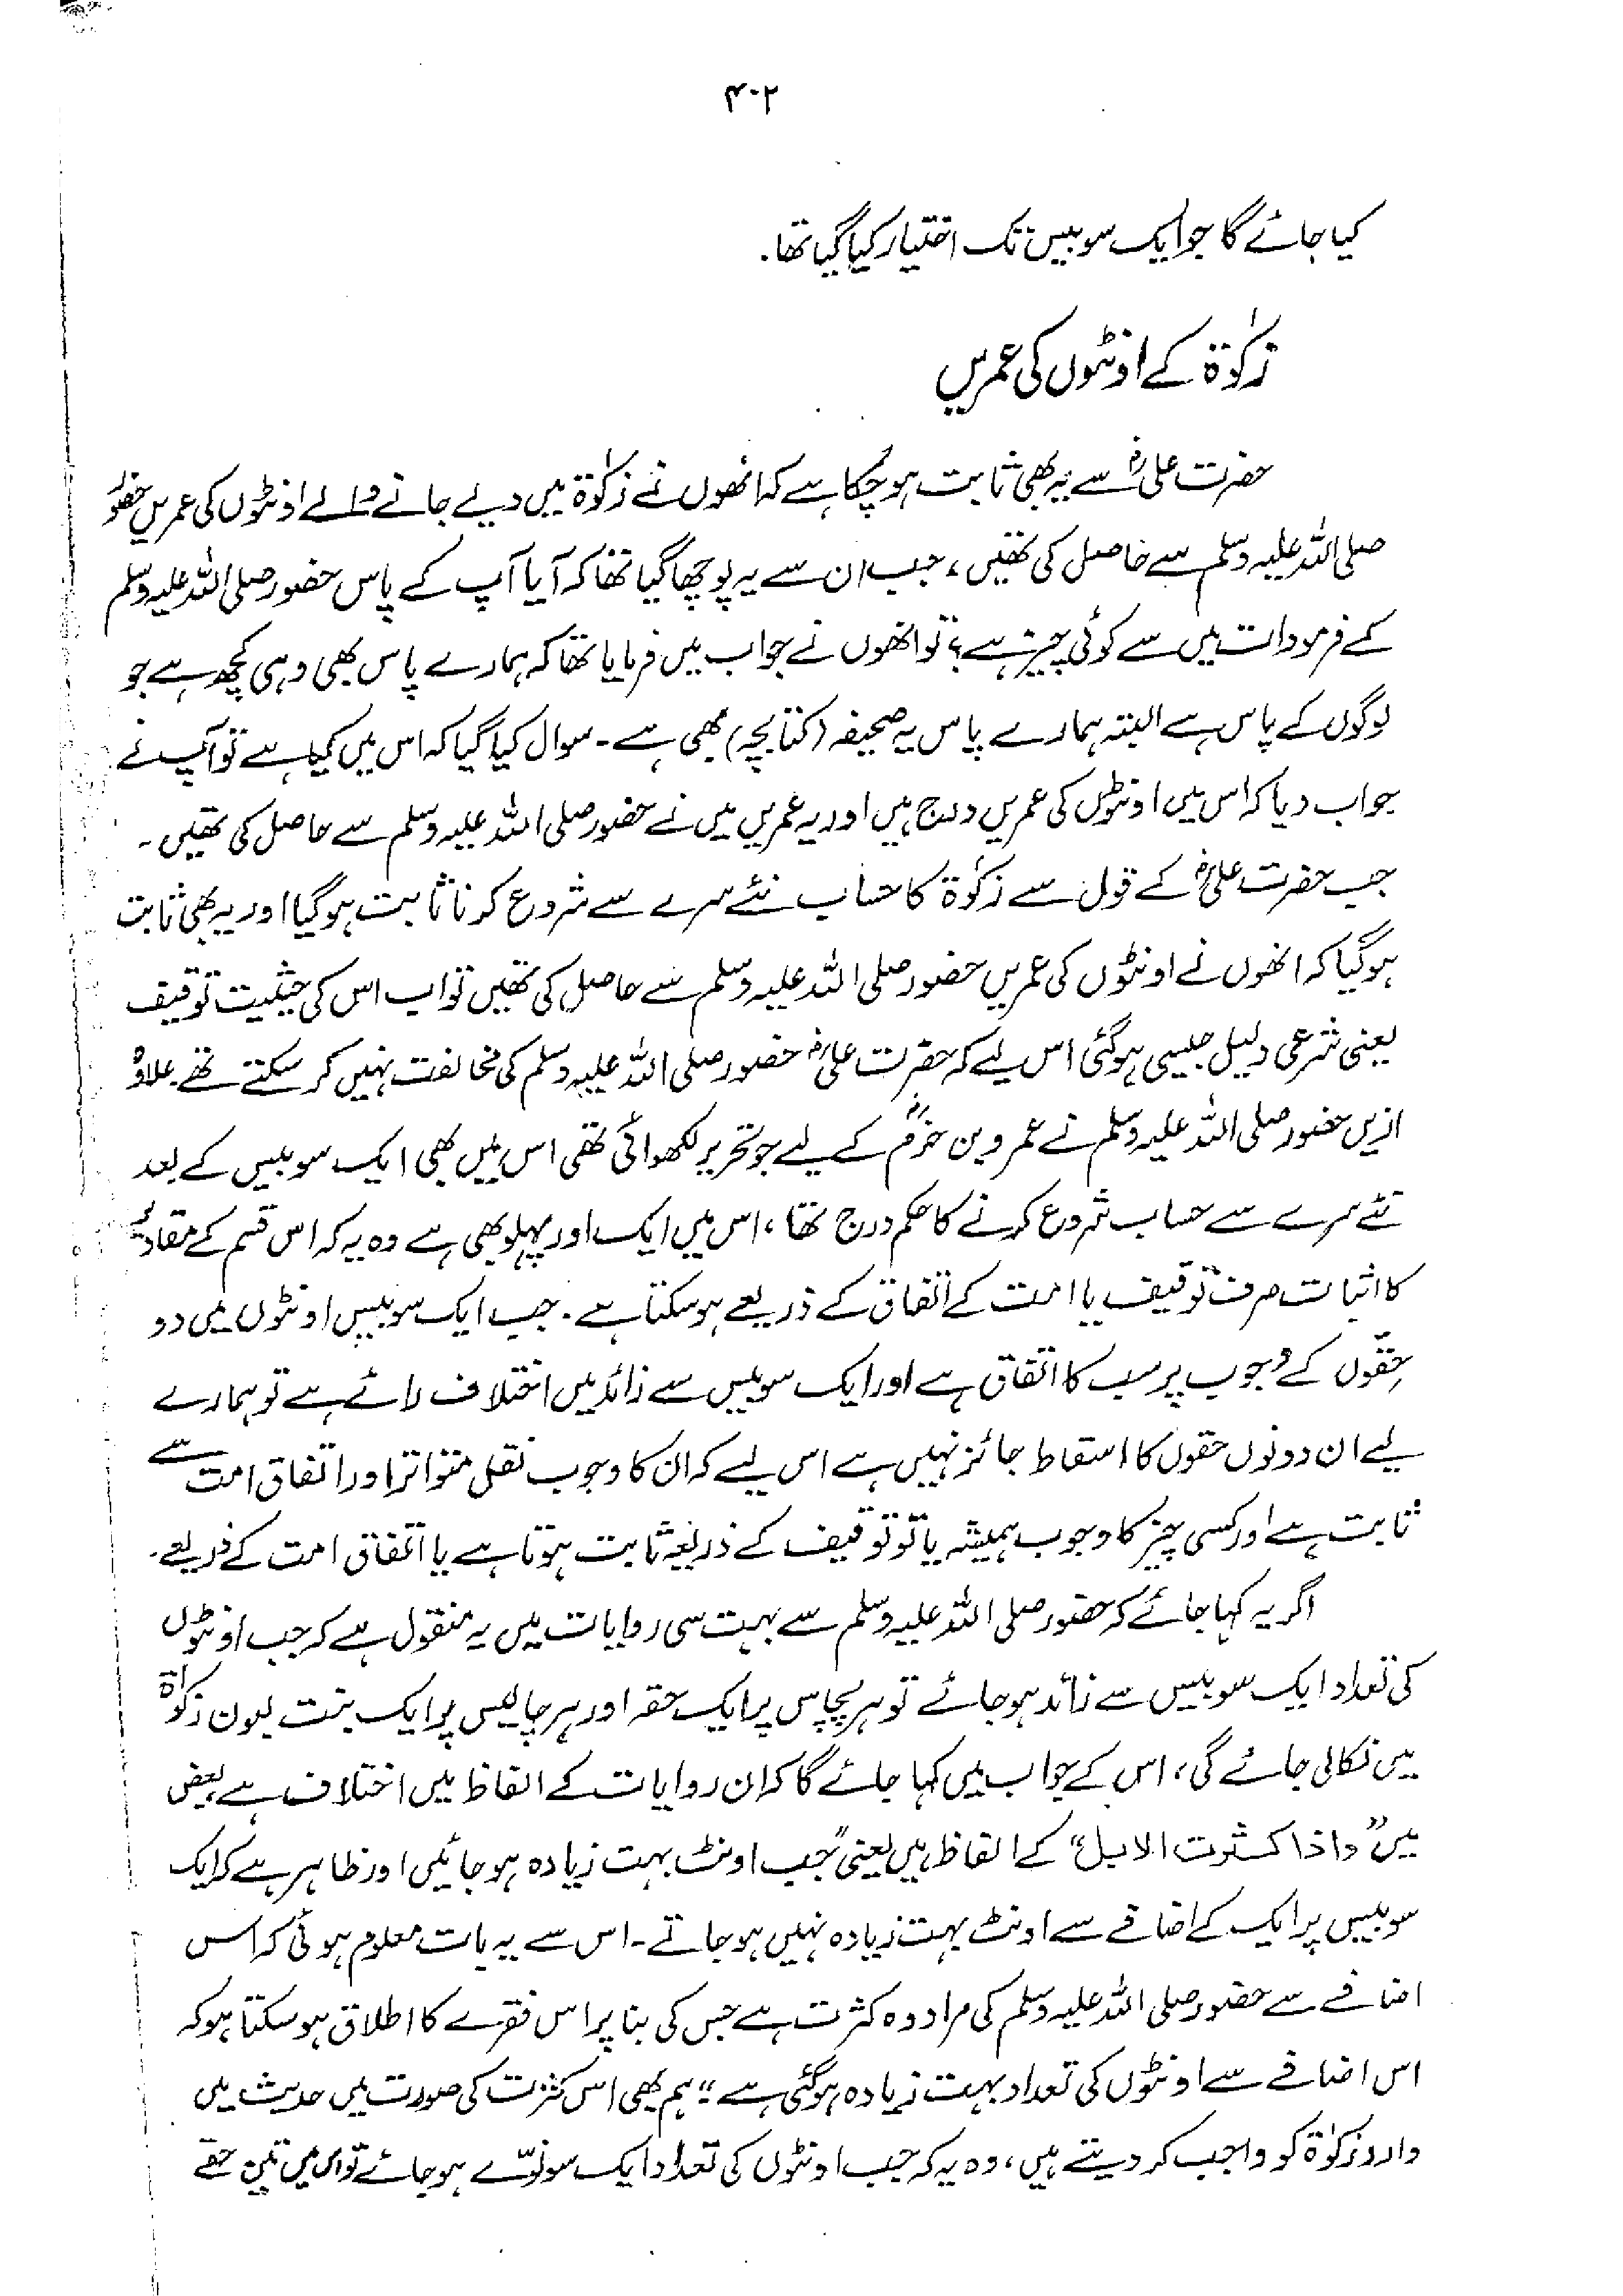 ۴۰۲
کیا جائے گا جو ایک سو بیس تک اختیار کیا گیا تھا۔
زکوٰۃ کے اونٹوں کی عمریں
حضرت علیؓ سے یہ بھی ثابت ہو چکا ہے کہ انھوں نے زکوٰۃ میں دیے جانے والے اونٹوں کی عمریں حضور
صلی اللہ علیہ وسلم سے حاصل کی تھیں، جب ان سے یہ پوچھا گیا تھا کہ آیا آپ کے پاس حضور صلی اللہ علیہ وسلم
کے فرمودات میں سے کوئی چیز ہے؟ تو انھوں نے جواب میں فرمایا تھا کہ ہمارے پاس بھی وہی کچھ ہے جو
لوگوں کے پاس ہے البتہ ہمارے پاس یہ صحیفہ (کتابچہ) بھی ہے۔ سوال کیا گیا کہ اس میں کیا ہے تو آپ نے
جواب دیا کہ اس میں اونٹوں کی عمریں درج ہیں اور یہ عمریں میں نے حضور صلی اللہ علیہ وسلم سے حاصل کی تھیں۔
جب حضرت علیؓ کے قول سے زکوٰۃ کا حساب نئے سرے سے شروع کرنا ثابت ہو گیا اور یہ بھی ثابت
ہو گیا کہ انھوں نے اونٹوں کی عمریں حضور صلی اللہ علیہ وسلم سے حاصل کی تھیں تو اب اس کی حیثیت توقیف
یعنی شرعی دلیل جیسی ہو گئی اس لیے کہ حضرت علیؓ حضور صلی اللہ علیہ وسلم کی مخالفت نہیں کر سکتے تھے۔ علاوہ
ازیں حضور صلی اللہ علیہ وسلم نے عمرو بن حزمؓ کے لیے جو تحریر لکھوائی تھی اس میں بھی ایک سو بیس کے بعد
نئے سرے سے حساب شروع کرنے کا حکم درج تھا، اس میں ایک اور پہلو بھی ہے وہ یہ کہ اس قسم کے مقادیر
کا اثبات صرف توقیف یا امت کے اتفاق کے ذریعے ہو سکتا ہے۔ جب ایک سو بیس اونٹوں میں دو
حِقّوں کے وجوب پر سب کا اتفاق ہے اور ایک سو بیس سے زائد میں اختلاف رائے ہے تو ہمارے
لیے ان دونوں حقوں کا اسقاط جائز نہیں ہے اس لیے کہ ان کا وجوب نقل متواتر اور اتفاق امت سے
ثابت ہے اور کسی چیز کا وجوب ہمیشہ یا تو توقیف کے ذریعہ ثابت ہوتا ہے یا اتفاق امت کے ذریعے۔
اگر یہ کہا جائے کہ حضور صلی اللہ علیہ وسلم سے بہت سی روایات میں یہ منقول ہے کہ جب اونٹوں
کی تعداد ایک سو بیس سے زائد ہو جائے تو ہر پچاس پر ایک حقہ اور ہر چالیس پر ایک بنت لبون زکوٰۃ
میں نکالی جائے گی، اس کے جواب میں کہا جائے گا کہ ان روایات کے الفاظ میں اختلاف ہے بعض
میں ”واذا کثرت الابل“ کے الفاظ ہیں یعنی ”جب اونٹ بہت زیادہ ہو جائیں اور ظاہر ہے کہ ایک
سو بیس پر ایک کے اضافے سے اونٹ بہت زیادہ نہیں ہو جاتے۔ اس سے یہ بات معلوم ہوئی کہ اس
اضافے سے حضور صلی اللہ علیہ وسلم کی مراد وہ کثرت ہے جس کی بنا پر اس فقرے کا اطلاق ہو سکتا ہو کہ
اس اضافے سے اونٹوں کی تعداد بہت زیادہ ہو گئی ہے“؛ ہم بھی اس کثرت کی صورت میں حدیث میں
وارد زکوٰۃ کو واجب کر دیتے ہیں، وہ یہ کہ جب اونٹوں کی تعداد ایک سو نوّے ہو جائے تو اس میں تین حقے